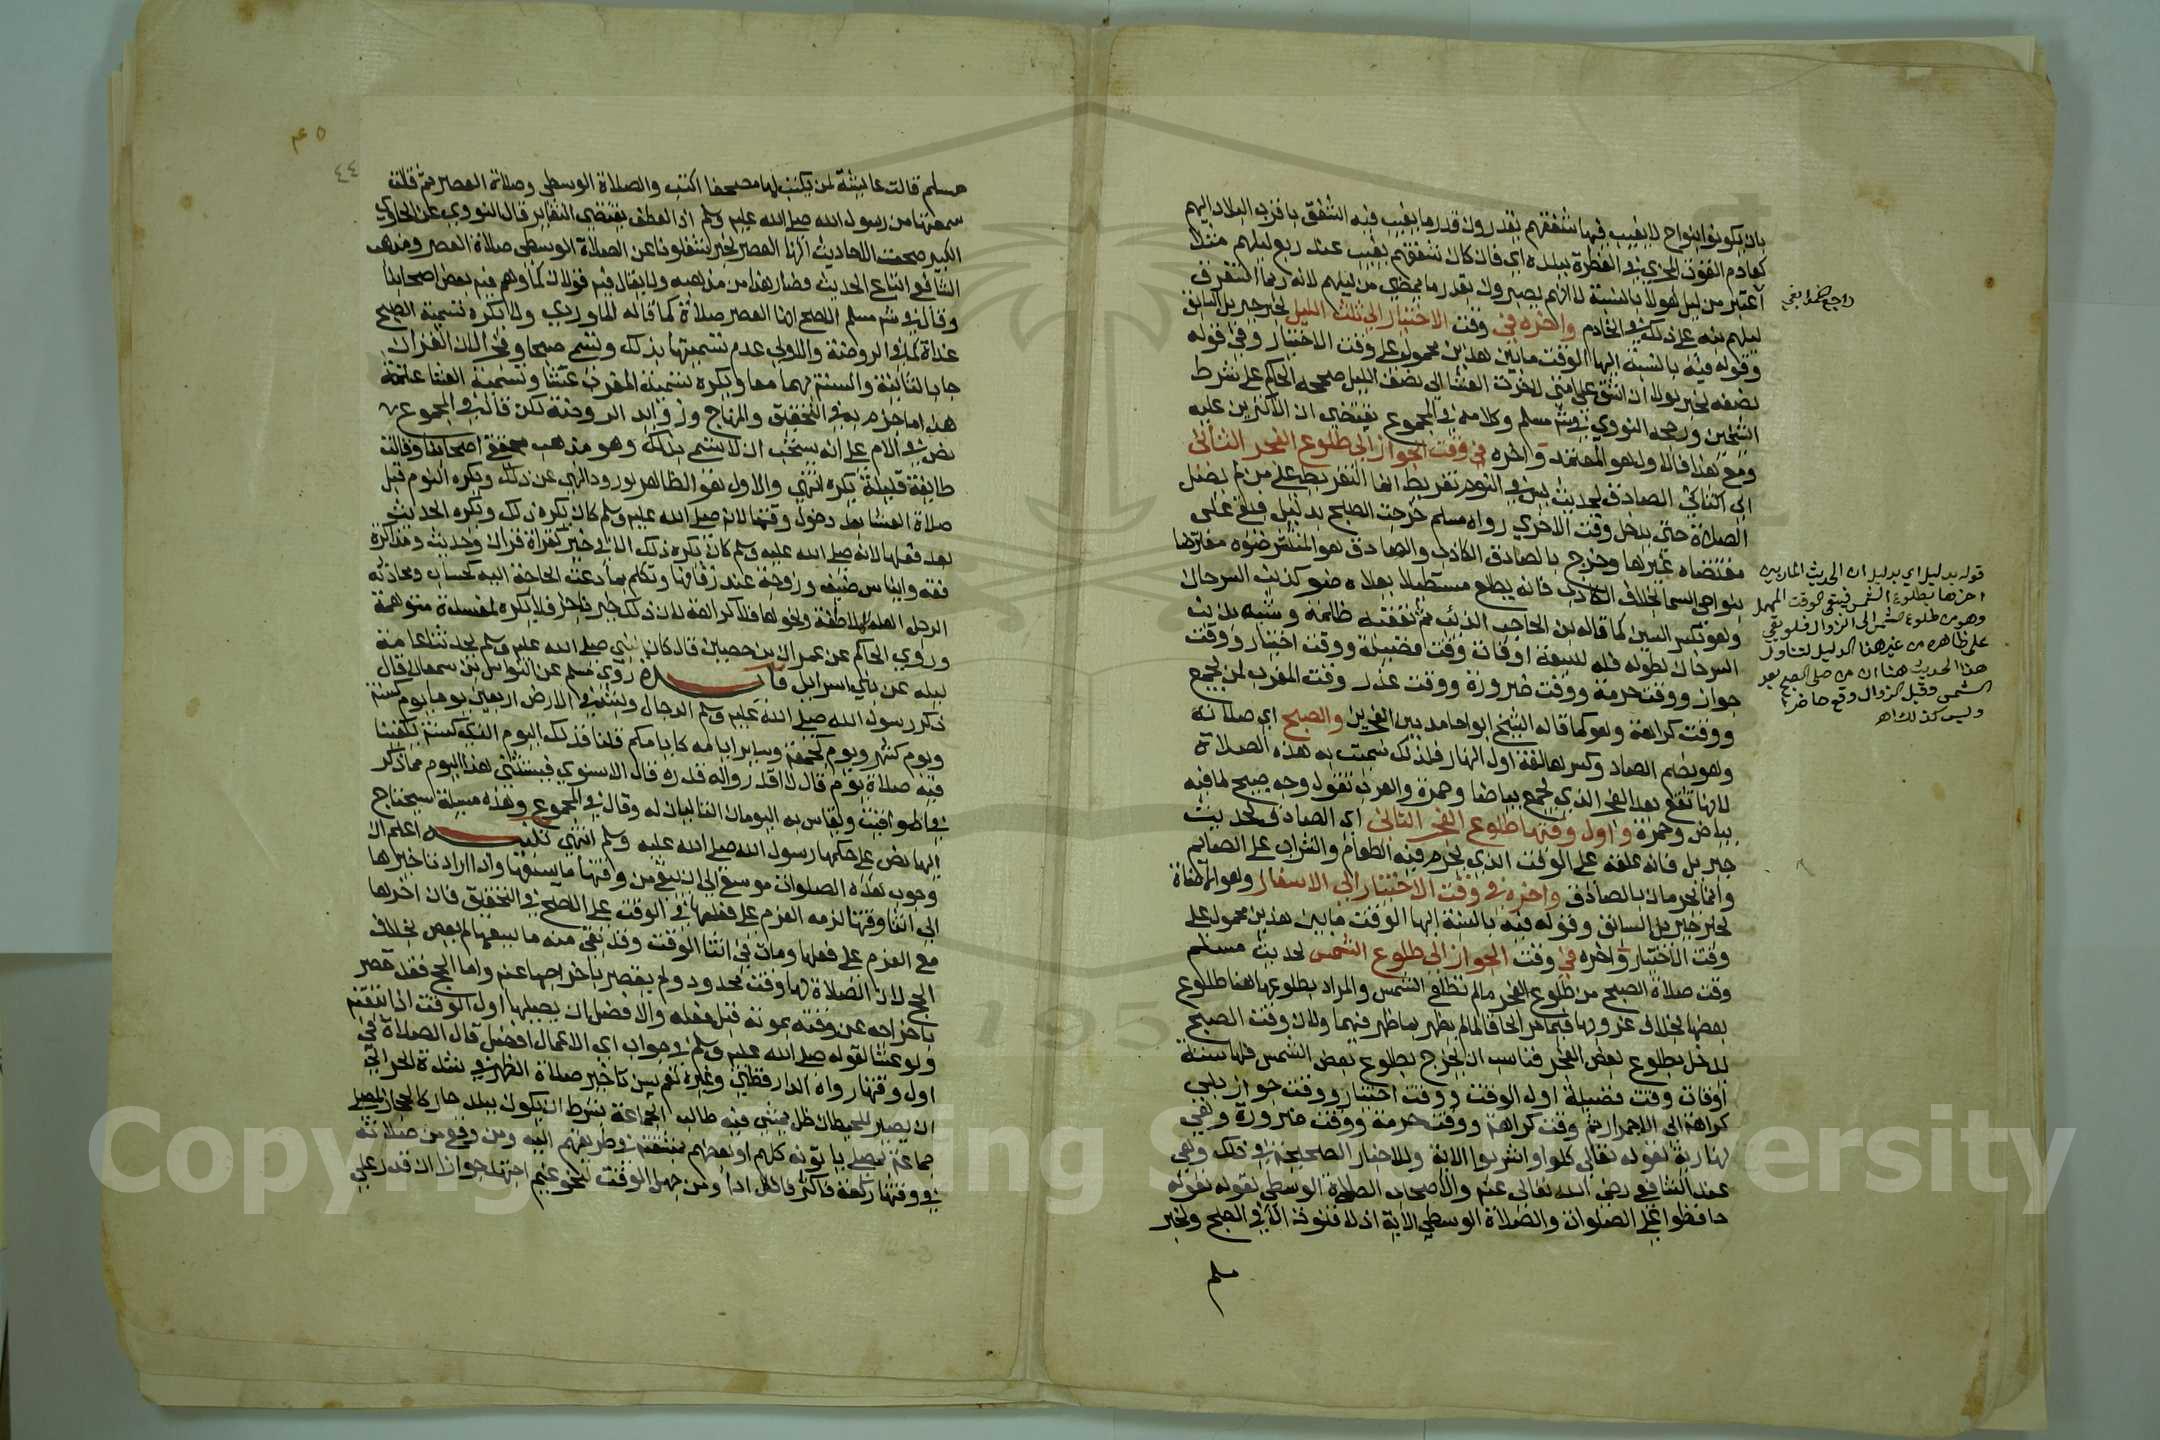 بان يكونوا بنواح لا يغيب فيها شفقهم يقدرون قدر ما يغيب فيه الشفق باقرب البلاد اليهم
كعادم القوت المجزي في الفطرة ببلده اي فان كان شفقهم يغيب عند ربع ليلهم مثلا
اعتبر من ليل هولا بالنسبة لا انهم يصبرون بقدر ما يمضي من ليلهم لانه ربما استغرق
ليلهم نبه على ذلك في الخادم واخره في وقت الاختيار الى ثلث الليل لخبر جبريل السابق
وقوله فيه بالنسبة اليها الوقت ما بين هذين محمول على وقت الاختيار وفي قوله
نصفه لخبر لولا ان اشق على امتي لاخرت العشا الى نصف الليل صححه الحاكم على شرط
الشيخين ورجحه النووي في شرح مسلم وكلامه في المجموع يقتضي ان الاكثرين عليه
ومع هذا فالاول هو المعتمد واخره في وقت الجواز الى طلوع الفجر الثاني
اي الثاني الصادق لحديث ليس في النوم تفريط انما التفريط على من لم يصل
الصلاة حتى يدخل وقت الاخرى رواه مسلم خرجت الصبح بدليل فبقي على
مقتضاه في غيرها وخرج بالصادق الكاذب والصادق هو المنتشر ضوه معترضا
بنواحي السما بخلاف الكاذب فانه يطلع مستطيلا بعلاه ضو كذنب السرحان
وهو بكسر السين كما قاله ابن الحاجب الذئب ثم تعقبه ظلمة وشبه بذنب
السرحان لطوله فله سبعة اوقات وقت فضيلة ووقت اختيار ووقت
جواز ووقت حرمة ووقت ضرورة ووقت عذر وقت المغرب لمن يجمع
ووقت كراهة وهو كما قاله الشيخ ابو حامد بين الفجرين والصبح اي صلاته
وهو بضم الصاد وكسرها لغة اول النهار فلذلك سميت به هذه الصلاة
لانها تقع بعد الفجر الذي يجمع بياضا وحمرة والعرب تقول وجه صبيح لما فيه
بياض وحمرة واول وقتها طلوع الفجر الثاني اي الصادق لحديث
جبريل فانه علقه على الوقت الذي يحرم فيه الطعام والشراب على الصائم
وانما يحرمان بالصادق واخره في وقت الاختيار الى الاسفار وهو الاضاة
لخبر جبريل السابق وقوله فيه بالنسبة اليها الوقت ما بين هذين محمول على
وقت الاختيار واخره في وقت الجواز الى طلوع الشمس لحديث مسلم
وقت صلاة الصبح من طلوع الفجر ما لم تطلع الشمس والمراد بطلوعها هنا طلوع
بعضها بخلاف غروبها فيما مر الحاقا لما لم يظهر بما ظهر فيهما ولان وقت الصبح
يدخل بطلوع بعض الفجر فناسب ان يخرج بطلوع بعض الشمس فلها ستة
اوقات وقت فضيلة اول الوقت ووقت اختيار ووقت جواز بلي
كراهة الى الاحمرار ثم وقت كراهة ووقت حرمة ووقت ضرورة وهي
نهارية لقوله تعالى كلوا واشربوا الاية وللاخبار الصحيحة في ذلك وهي
عند الشافعي رضي الله تعالى عنه والاصحاب الصلاة الوسطى لقوله تعالى
حافظوا على الصلوات والصلاة الوسطى الاية اذ لا قنوت الا في الصبح ولخبر
مسلم
راجع
قوله بدليل اي بدليل ان الحديث المار بين
اخرها بطلوع الشمس فيبقى الوقت المهمل
وهو من طلوع الشمس الى الزوال فلو بقي
على ظاهره من غير هذا الدليل لتناول
هذا الحديث هنا ان من صلى الصبح بعد
الشمس وقبل الزوال وقع حاضرا
وليس كذلك اهـ
٤٤
مسلم قالت عايشة لمن يكتب لها مصحفا اكتب والصلاة الوسطى وصلاة العصر ثم قالت
سمعتها من رسول الله صلى الله عليه وسلم اذ العطف يقتضي التغاير قال النووي عن الحاوي
الكبير صحت الاحاديث انها العصر لخبر شغلونا عن الصلاة الوسطى صلاة العصر ومذهب
الشافعي اتباع الحديث فصار هذا من مذهبه ولا يقال فيه قولان كما وهم فيه بعض اصحابنا
وقال في شرح مسلم الاصح انها العصر صلاة كما قاله الماوردي ولا يكره تسمية الصبح
غداة كما في الروضة والاولى عدم تسميتها بذلك وتسمى صبحا وفجرا لان القران
جا بالثانية والسنة بهما معا ويكره تسمية المغرب عشا وتسمية العشا عتمة
هذا ما جزم به في التحقيق والمنهاج وزوايد الروضة لكن قال في المجموع
نص في الام على انه يستحب ان لا تسمى بذلك وهو مذهب محققي اصحابنا وقالت
طايفة قليلة يكره انتهى والاول هو الظاهر لورود النهي عن ذلك ويكره النوم قبل
صلاة العشا بعد دخول وقتها لانه صلى الله عليه وسلم كان يكره ذلك ويكره الحديث
بعد فعلها لانه صلى الله عليه وسلم كان يكره ذلك الا في خير كقراة قران وحديث ومذاكرة
فقه وايناس ضيف وزوجة عند زفافها وتكلم بما دعت الحاجة اليه كحساب ومحادثة
الرجل اهله لملاطفة ونحوها فلا كراهة لان ذلك خير ناجز فلا يكره لمفسدة متوهمة
وروى الحاكم عن عمران بن حصين قال كان النبي صلى الله عليه وسلم يحدثنا عامة
ليله عن بني اسرايل فايدة روى مسلم عن النواس بن سمعان قال
ذكر رسول الله صلى الله عليه وسلم الدجال ولبثه في الارض اربعين يوما يوم كسنة
ويوم كشهر ويوم كجمعة وساير ايامه كايامكم قلنا فذلك اليوم الذي كسنة تكفينا
فيه صلاة يوم قال لا اقدروا له قدره قال الاسنوي فيستثنى هذا اليوم مما ذكر
في المواقيت ويقاس به اليومان التاليان له وقال في المجموع وهذه مسيلة سيحتاج
اليها نص على حكمها رسول الله صلى الله عليه وسلم انتهى تنبيه اعلم ان
وجوب هذه الصلوات موسع الى ان يبقى من وقتها ما يسعها واذا اراد تاخيرها
الى اثنا وقتها لزمه العزم على فعلها في الوقت على الاصح في التحقيق فان اخرها
مع العزم على فعلها ومات في اثنا الوقت وقد بقي منه ما يسعها لم يعص بخلاف
الحج لان الصلاة لها وقت محدود ولم يقصر باخراجها عنه واما الحج فقد قصر
باخراجه عن وقته بموته قبل فعله والافضل ان يصليها اول الوقت اذا تيقنه
ولو عشا لقوله صلى الله عليه وسلم في جواب اي الاعمال افضل قال الصلاة في
اول وقتها رواه الدارقطني وغيره نعم يسن تاخير صلاة الظهر في شدة الحر الى
ان يصير للحيطان ظل يمشي فيه طالب الجماعة بشرط ان يكون ببلد حار كالحجاز لمصلي
جماعة بمصلى ياتونه كلهم او بعضهم بمشقة في طريقهم اليه ومن وقع من صلاته
في وقتها ركعة فاكثر فالكل ادا ومن جهل الوقت لنحو غيم اجتهد جوازا ان قدر على
Copyright © King Saud University
195